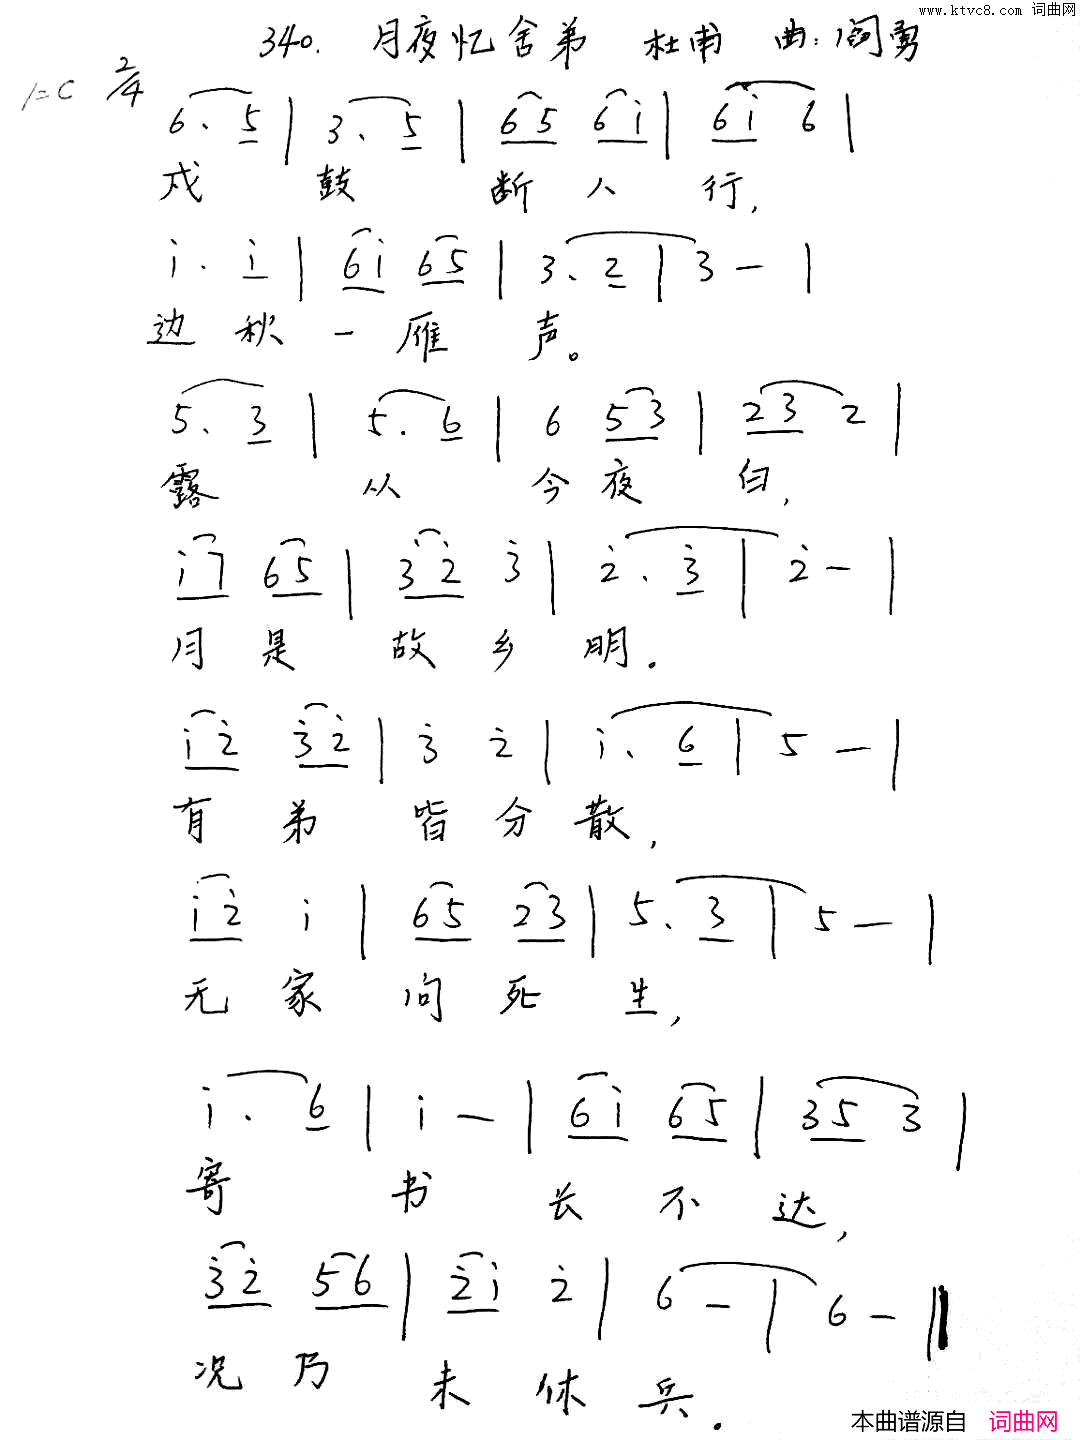 www.ktvc8.com 词曲网
340. 月夜忆舍弟 杜甫 曲:阎勇
1=C 2/4
6. 5 | 3. 5 | 65 6i | 6i 6 |
戍 鼓 断 人 行,
i. i | 6i 65 | 3. 2 | 3 — |
边 秋 一 雁 声。
5. 3 | 5. 6 | 6 53 | 23 2 |
露 从 今 夜 白,
i7 65 | 3̇2̇ 3̇ | 2̇. 3̇ | 2̇ — |
月 是 故 乡 明.
i2̇ 3̇2̇ | 3̇ 2̇ | i. 6 | 5 — |
有 弟 皆 分 散,
i2̇ i | 65 23 | 5. 3 | 5 — |
无 家 问 死 生,
i. 6 | i — | 6i 65 | 35 3 |
寄 书 长 不 达,
3̇2̇ 56 | 2̇i 2̇ | 6 — | 6 — ||
况 乃 未 休 兵.
本曲谱源自 词曲网